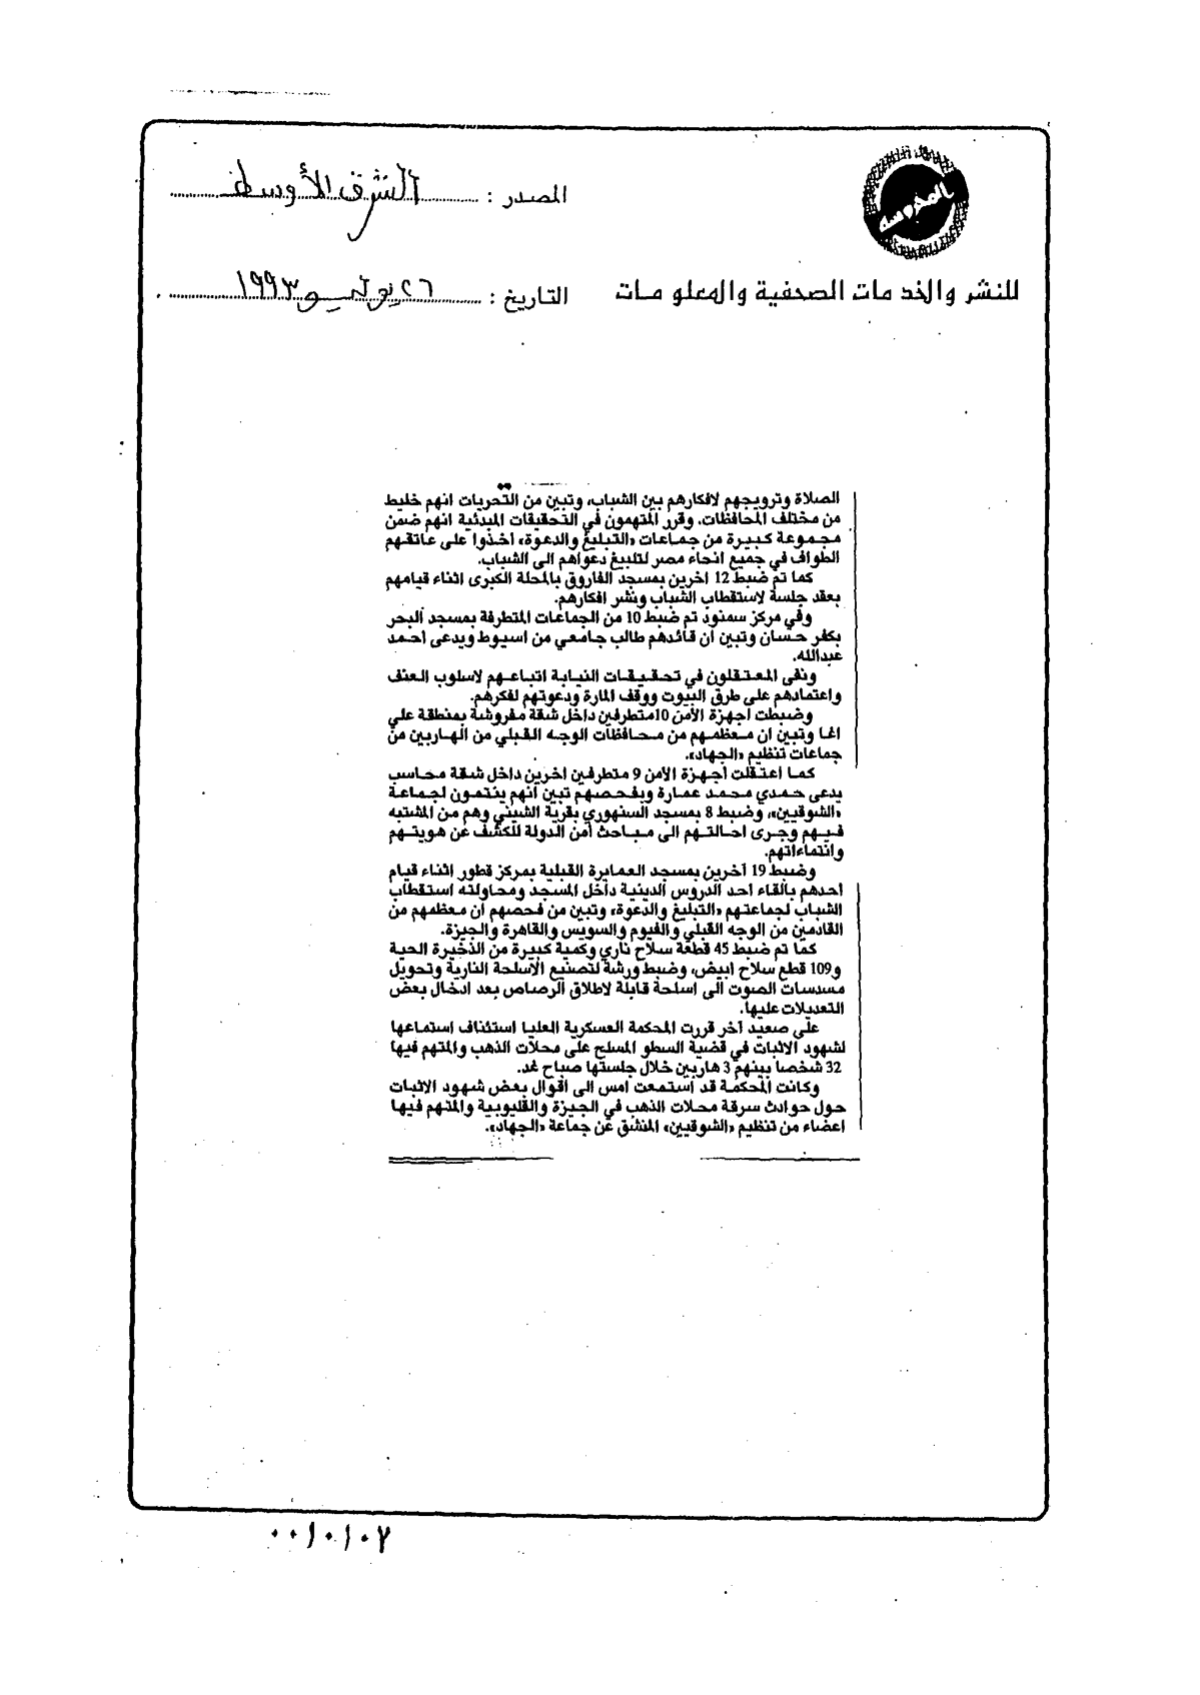 المصدر : الشرق الأوسط
المحروسة
للنشر والخدمات الصحفية والمعلومات
التاريخ : ٢٦ يوليو ١٩٩٣
الصلاة وترويجهم لافكارهم بين الشباب، وتبين من التحريات انهم خليط
من مختلف المحافظات. وقرر المتهمون في التحقيقات المبدئية انهم ضمن
مجموعة كبيرة من جماعات «التبليغ والدعوة» اخذوا على عاتقهم
الطواف في جميع انحاء مصر لتلبيغ دعواهم الى الشباب.
كما تم ضبط 12 اخرين بمسجد الفاروق بالمحلة الكبرى اثناء قيامهم
بعقد جلسة لاستقطاب الشباب ونشر افكارهم.
وفي مركز سمنود تم ضبط 10 من الجماعات المتطرفة بمسجد البحر
بكفر حسان وتبين ان قائدهم طالب جامعي من اسيوط ويدعى احمد
عبدالله.
ونفى المعتقلون في تحقيقات النيابة اتباعهم لاسلوب العنف
واعتمادهم على طرق البيوت ووقف المارة ودعوتهم لفكرهم.
وضبطت اجهزة الامن 10متطرفين داخل شقة مفروشة بمنطقة علي
اغا وتبين ان معظمهم من محافظات الوجه القبلي من الهاربين من
جماعات تنظيم «الجهاد».
كما اعتقلت أجهزة الامن 9 متطرفين اخرين داخل شقة محاسب
يدعى حمدي محمد عمارة وبفحصهم تبين انهم ينتمون لجماعة
«الشوقيين»، وضبط 8 بمسجد السنهوري بقرية الشيني وهم من المشتبه
فيهم وجرى احالتهم الى مباحث أمن الدولة للكشف عن هويتهم
وانتماءاتهم.
وضبط 19 آخرين بمسجد العمايرة القبلية بمركز قطور اثناء قيام
احدهم بالقاء احد الدروس الدينية داخل المسجد ومحاولته استقطاب
الشباب لجماعتهم «التبليغ والدعوة» وتبين من فحصهم ان معظمهم من
القادمين من الوجه القبلي والفيوم والسويس والقاهرة والجيزة.
كما تم ضبط 45 قطعة سلاح ناري وكمية كبيرة من الذخيرة الحية
و109 قطع سلاح ابيض، وضبط ورشة لتصنيع الاسلحة النارية وتحويل
مسدسات الصوت الى اسلحة قابلة لاطلاق الرصاص بعد ادخال بعض
التعديلات عليها.
على صعيد آخر قررت المحكمة العسكرية العليا استئناف استماعها
لشهود الاثبات في قضية السطو المسلح على محلات الذهب والمتهم فيها
32 شخصا بينهم 3 هاربين خلال جلستها صباح غد.
وكانت المحكمة قد استمعت امس الى اقوال بعض شهود الاثبات
حول حوادث سرقة محلات الذهب في الجيزة والقليوبية والمتهم فيها
اعضاء من تنظيم «الشوقيين» المنشق عن جماعة «الجهاد».
٠٠١٠١٠٧